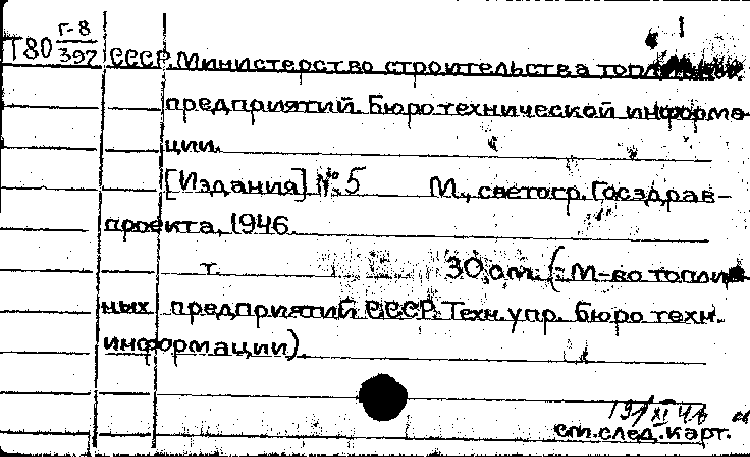 1
Г-8
Т80 397 СССР. Министерство строительства топливных
предприятий. Бюро технической информа-
ции.
[Издания] № 5 М., светогр. Госздрав-
проекта, 1946.
т. 30 см. (: М-во топлив-
ных предприятий СССР. Техн. упр. Бюро техн.
информации).
см. след. карт.